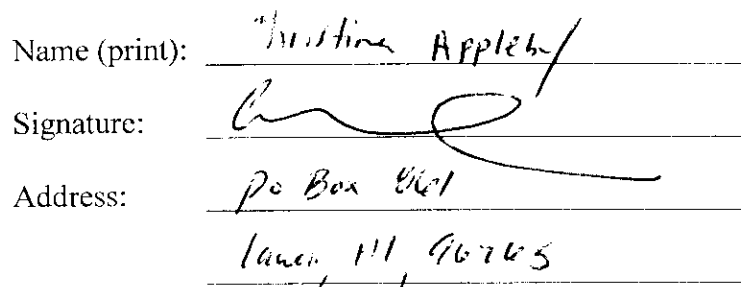 Name (print): Christina Appleby
Signature:
Address: Po Box
HI, 96765